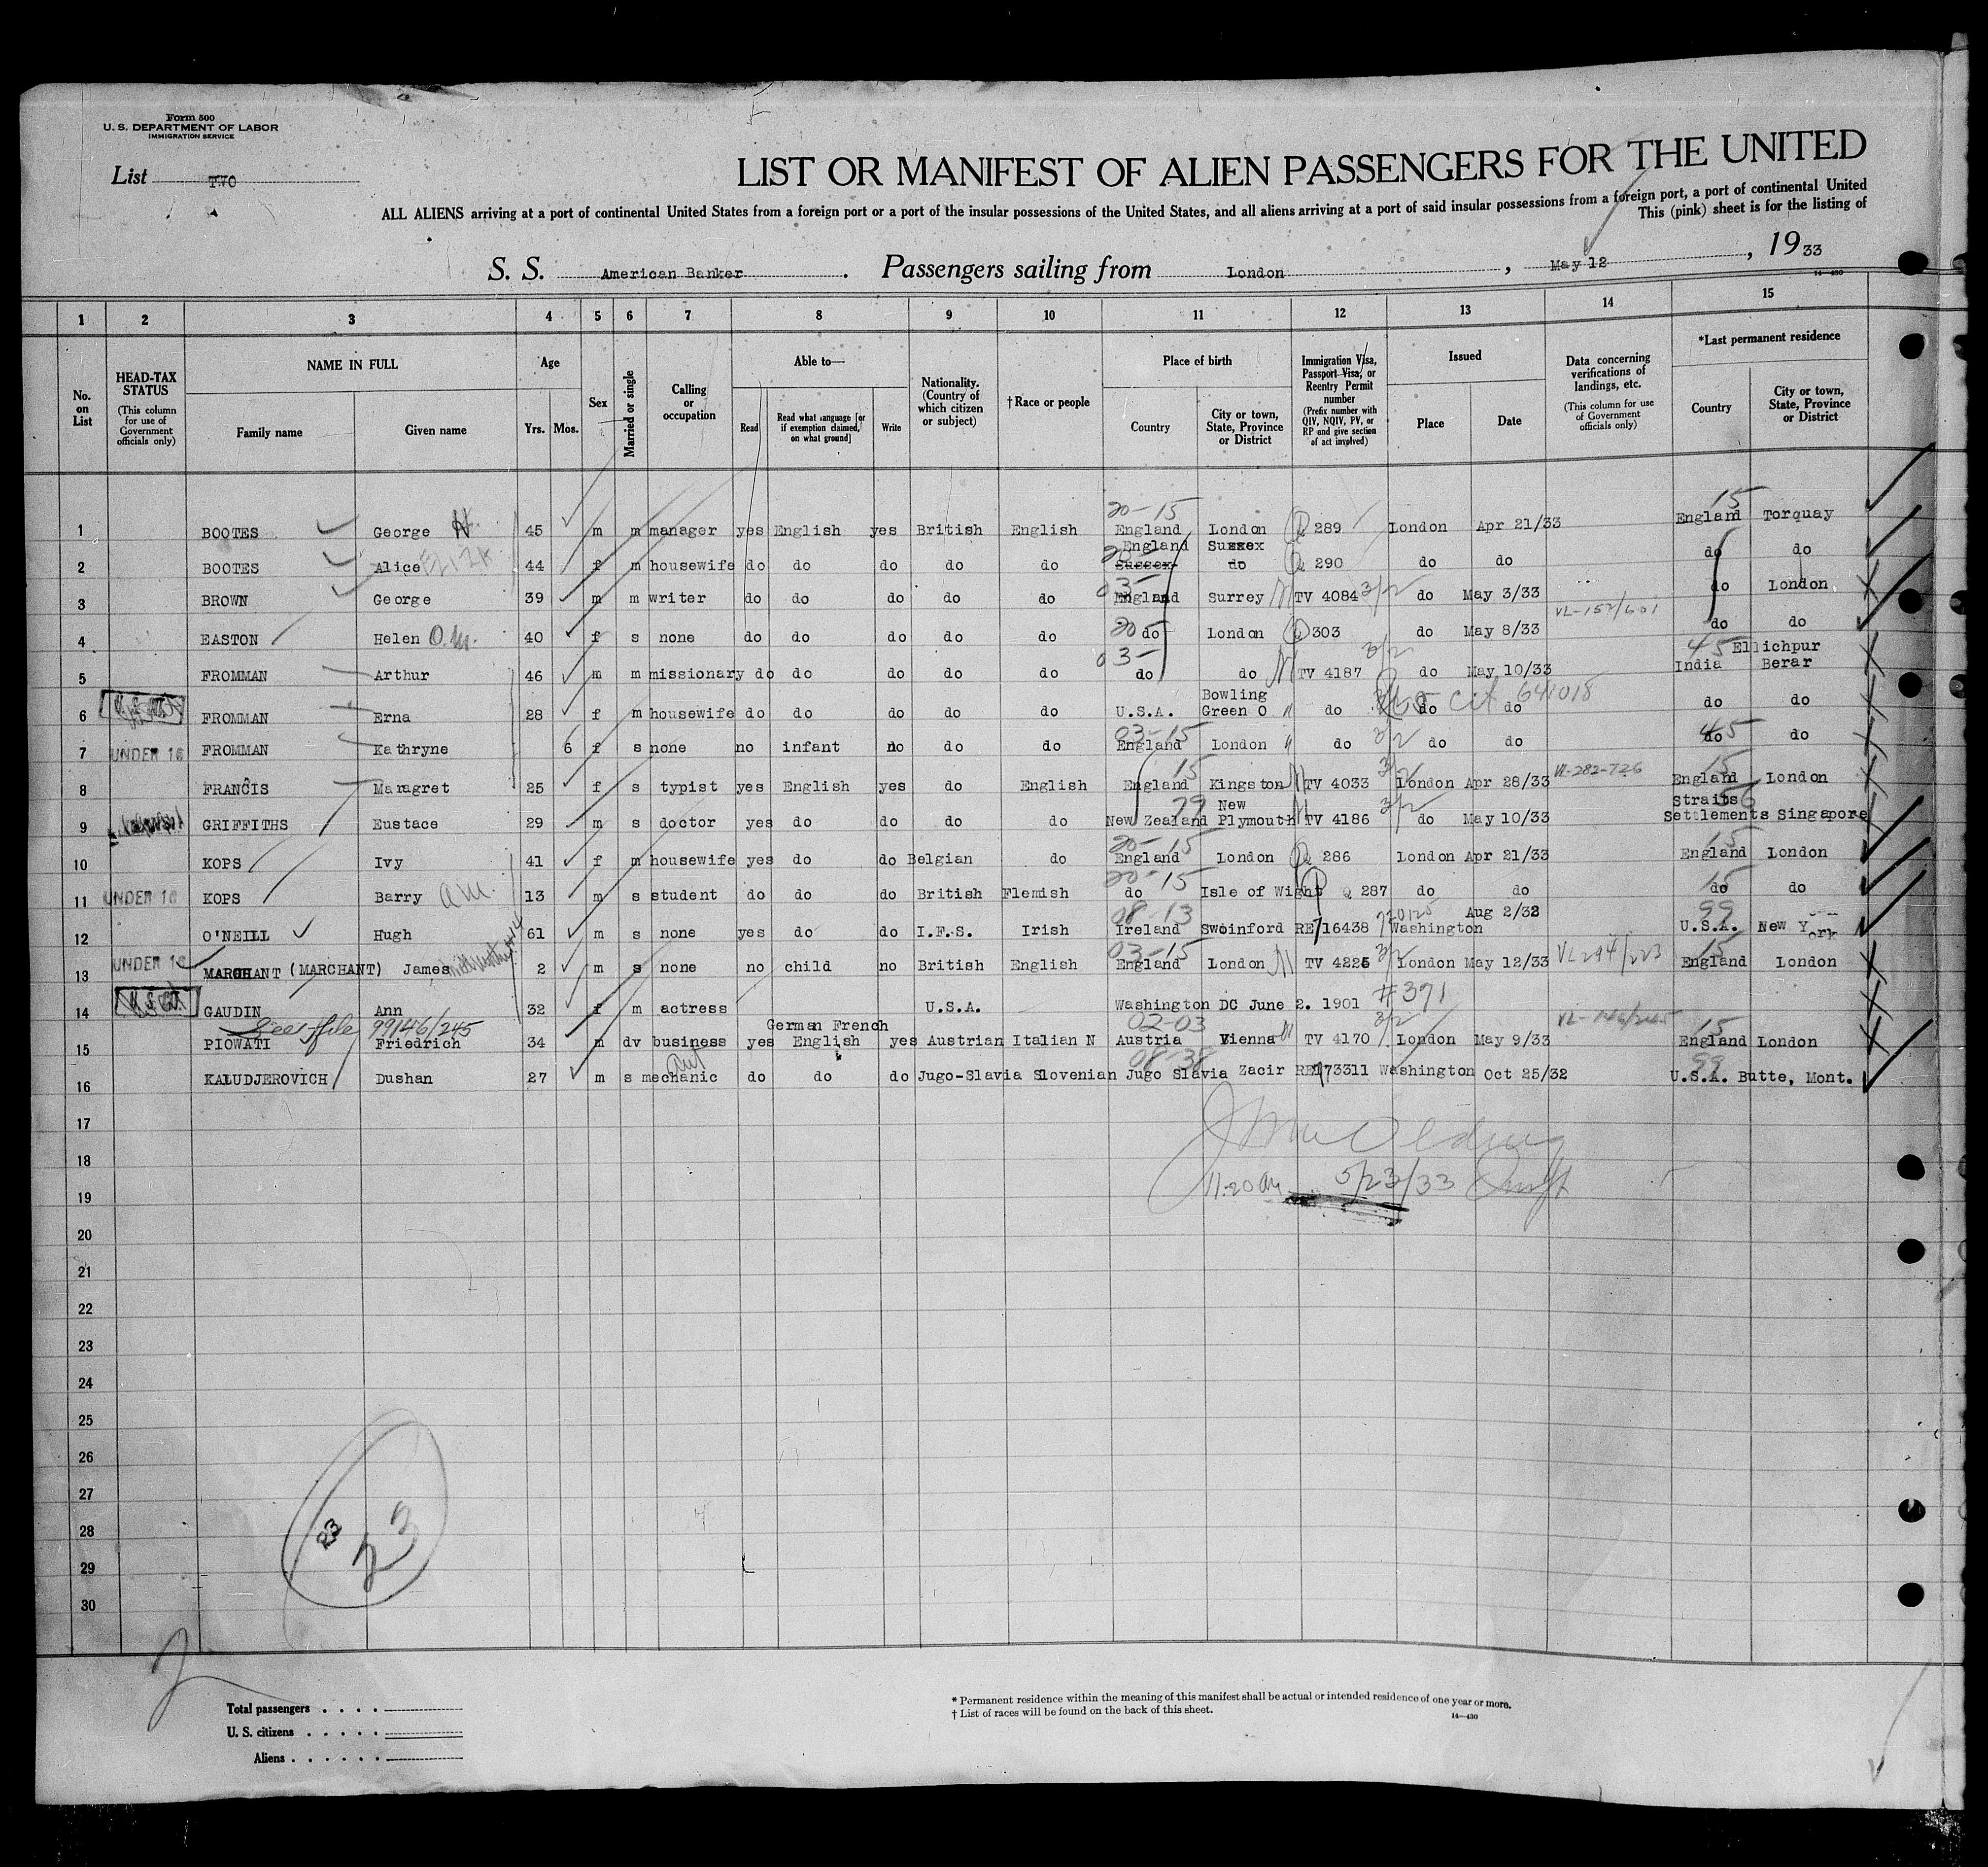 Form 500
U. S. DEPARTMENT OF LABOR
IMMIGRATION SERVICE
List TWO
LIST OR MANIFEST OF ALIEN PASSENGERS FOR THE UNITED
ALL ALIENS arriving at a port of continental United States from a foreign port or a port of the insular possessions of the United States, and all aliens arriving at a port of said insular possessions from a foreign port, a port of continental United
This (pink) sheet is for the listing of
S. S. American Banker. Passengers sailing from London, May 12, 1933
14—430
1 2 3 4 5 6 7 8 9 10 11 12 13 14 15
No. on List
HEAD-TAX STATUS (This column for use of Government officials only)
NAME IN FULL
Family name Given name
Age
Yrs. Mos.
Sex
Married or single
Calling or occupation
Able to—
Read Read what language [or if exemption claimed, on what ground] Write
Nationality. (Country of which citizen or subject)
†Race or people
Place of birth
Country City or town, State, Province or District
Immigration Visa, Passport Visa, or Reentry Permit number (Prefix number with QIV, NQIV, PV, or RP and give section of act involved)
Issued
Place Date
Data concerning verifications of landings, etc. (This column for use of Government officials only)
*Last permanent residence
Country City or town, State, Province or District
20-15 15
1 BOOTES George H. 45 m m manager yes English yes British English England London Q 289 London Apr 21/33 England Torquay
England Sussex
2 BOOTES Alice 44 f m housewife do do do do do Sussex do Q 290 do do do do
03-
3 BROWN George 39 m m writer do do do do do England Surrey N TV 4084 3/2 do May 3/33 do London
VL-152/601
4 EASTON Helen O.M. 40 f s none do do do do do 20 do London Q 303 do May 8/33 do do
03- 3/2 45 Ellichpur
5 FROMMAN Arthur 46 m m missionary do do do do do do do N TV 4187 do May 10/33 India Berar
Bowling US Cit 641018
6 FROMMAN Erna 28 f m housewife do do do do do U.S.A. Green O " do do do do do
03-15 45
7 UNDER 16 FROMMAN Kathryne 6 f s none no infant no do do England London " do 3/2 do do do do
15 3/2 VL-282-726 15
8 FRANCIS Maragret 25 f s typist yes English yes do English England Kingston N TV 4033 London Apr 28/33 England London
79 New 3/2 Straits 56
9 GRIFFITHS Eustace 29 m s doctor yes do do do do New Zealand Plymouth N TV 4186 do May 10/33 Settlements Singapore
20-15 15
10 KOPS Ivy 41 f m housewife yes do do Belgian do England London Q 286 London Apr 21/33 England London
20-15 15
11 UNDER 16 KOPS Barry A.M. 13 m s student do do do British Flemish do Isle of Wight Q 287 do do do do
08-13 Aug 2/32 99
12 O'NEILL Hugh 61 m s none yes do do I.F.S. Irish Ireland Swoinford RE 716438 Washington U.S.A. New York
03-15 15
13 UNDER 16 MARCHANT (MARCHANT) James 2 m s none no child no British English England London N TV 4225 3/2 London May 12/33 VL294/223 England London
14 GAUDIN Ann 32 f m actress U.S.A. Washington DC June 2. 1901 #391
See file 99146/245
German French 02-03 3/2 15
15 PIOWATI Friedrich 34 m dv business yes English yes Austrian Italian N Austria Vienna N TV 4170 London May 9/33 England London
Aut 08-38 99
16 KALUDJEROVICH Dushan 27 m s mechanic do do do Jugo-Slavia Slovenian Jugo Slavia Zacir RE 173311 Washington Oct 25/32 U.S.A. Butte, Mont.
17
18
11.20 am 5/23/33
19
20
21
22
23
24
25
26
27
23
28
23
29
30
2
Total passengers . . . .
U. S. citizens . . . . .
Aliens . . . . . .
* Permanent residence within the meaning of this manifest shall be actual or intended residence of one year or more.
† List of races will be found on the back of this sheet.
14—430